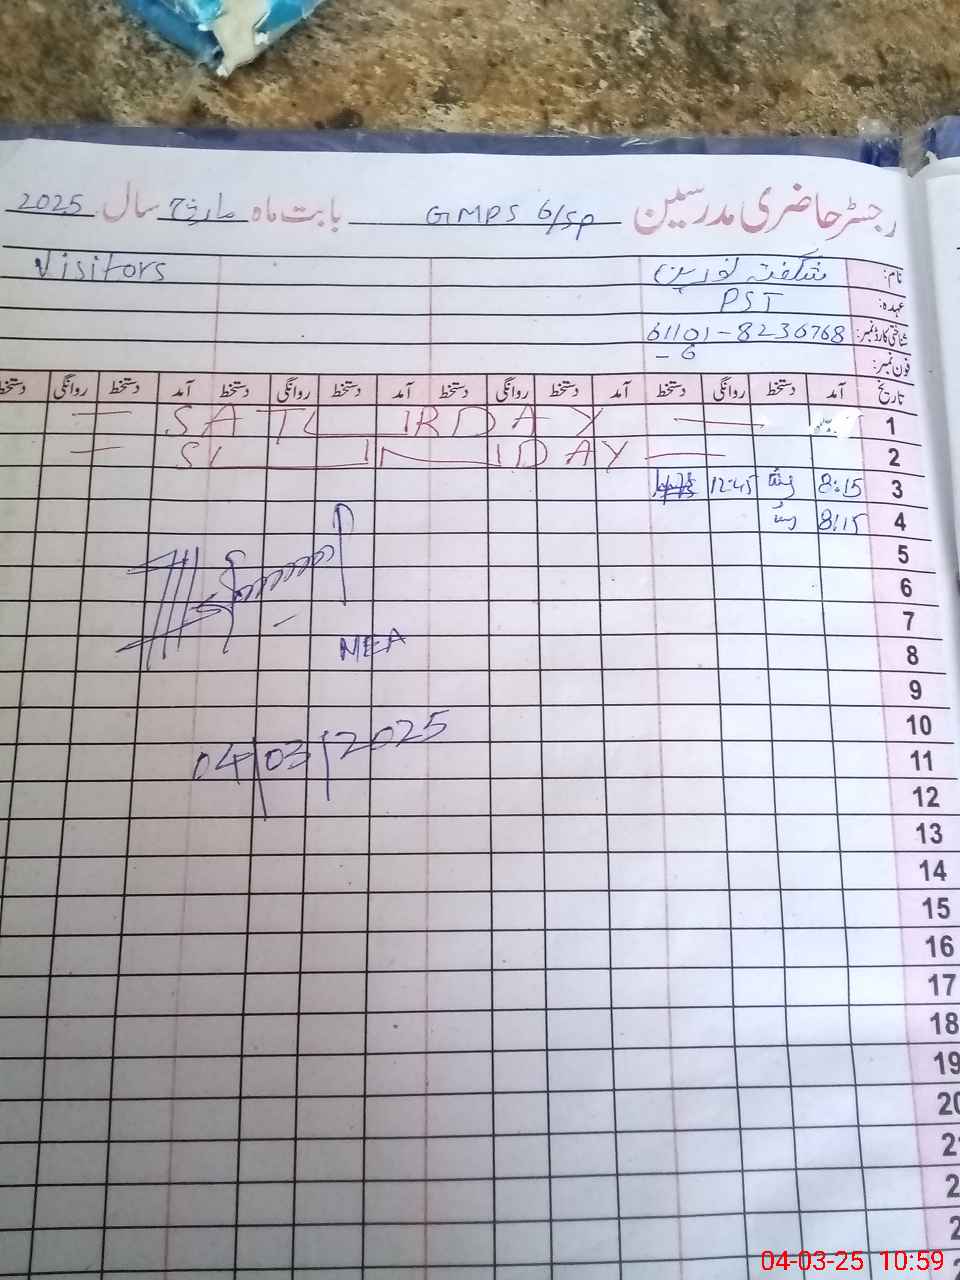 رجسٹر حاضری مدرسین GMPS 6/SP بابت ماہ مارچ سال 2025
نام: شگفتہ نورین Visitors
عہدہ: PST
شناختی کارڈ نمبر: 61101-8236768
-6
فون نمبر:
تاریخ آمد دستخط روانگی دستخط آمد دستخط روانگی دستخط آمد دستخط روانگی دستخط آمد دستخط روانگی دستخط
1 — SATURDAY —
2 — SUNDAY —
3 8:15 12:45
4 8:15
5
6
7
MEA
8
9
10
04/03/2025
11
12
13
14
15
16
17
18
19
20
04-03-25 10:59